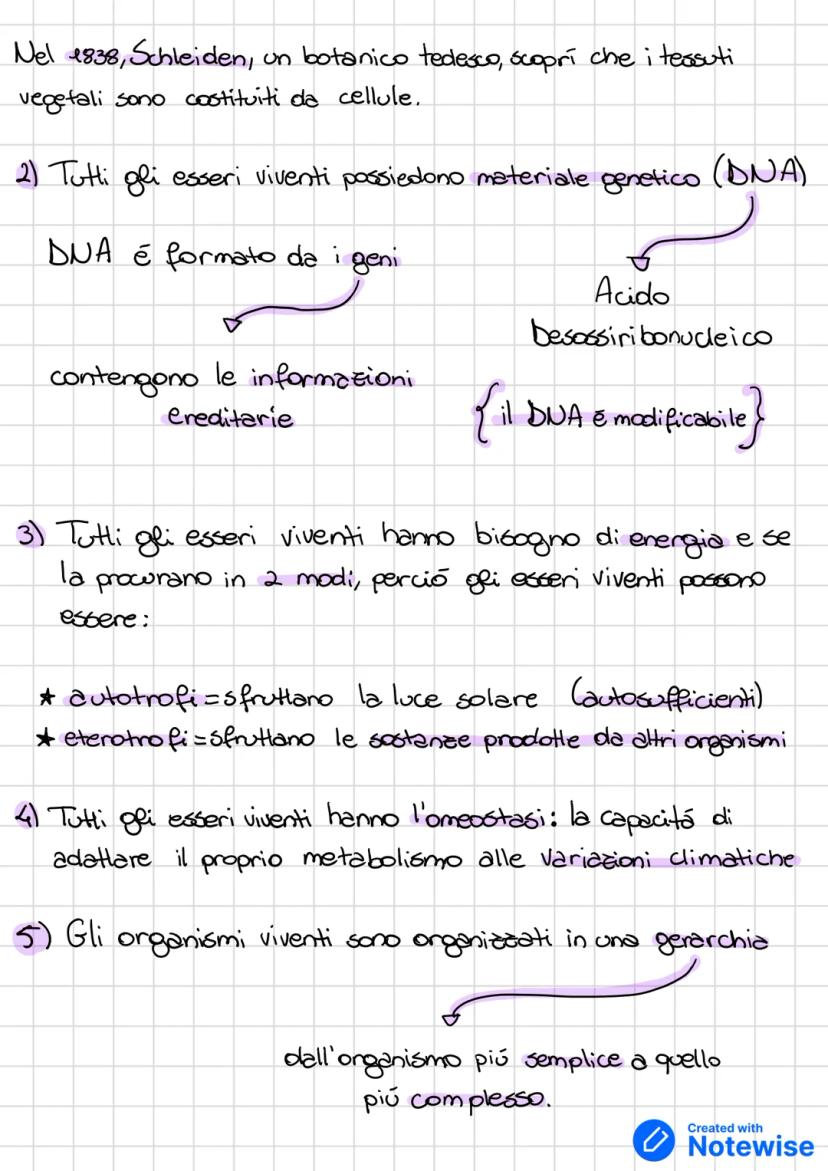 Nel 1838, Schleiden, un botanico tedesco, scoprí che i tessuti
vegetali sono costituiti da cellule.
2) Tutti gli esseri viventi possiedono materiale genetico (DNA)
DNA é formato da i geni
contengono le informazioni
ereditarie
Acido
Desossiribonucleico
{il DNA é modificabile}
3) Tutti gli esseri viventi hanno bisogno di energia e se
la procurano in 2 modi, perció gli esseri viventi possono
essere:
★ autotrofi=sfruttano la luce solare (autosufficienti)
★ eterotrofi=sfruttano le sostanze prodotte da altri organismi
4) Tutti gli esseri viventi hanno l'omeostasi: la capacitá di
adattare il proprio metabolismo alle variazioni climatiche
5) Gli organismi viventi sono organizzati in una gerarchia
dall'organismo piú semplice a quello
piú complesso.
Created with
Notewise